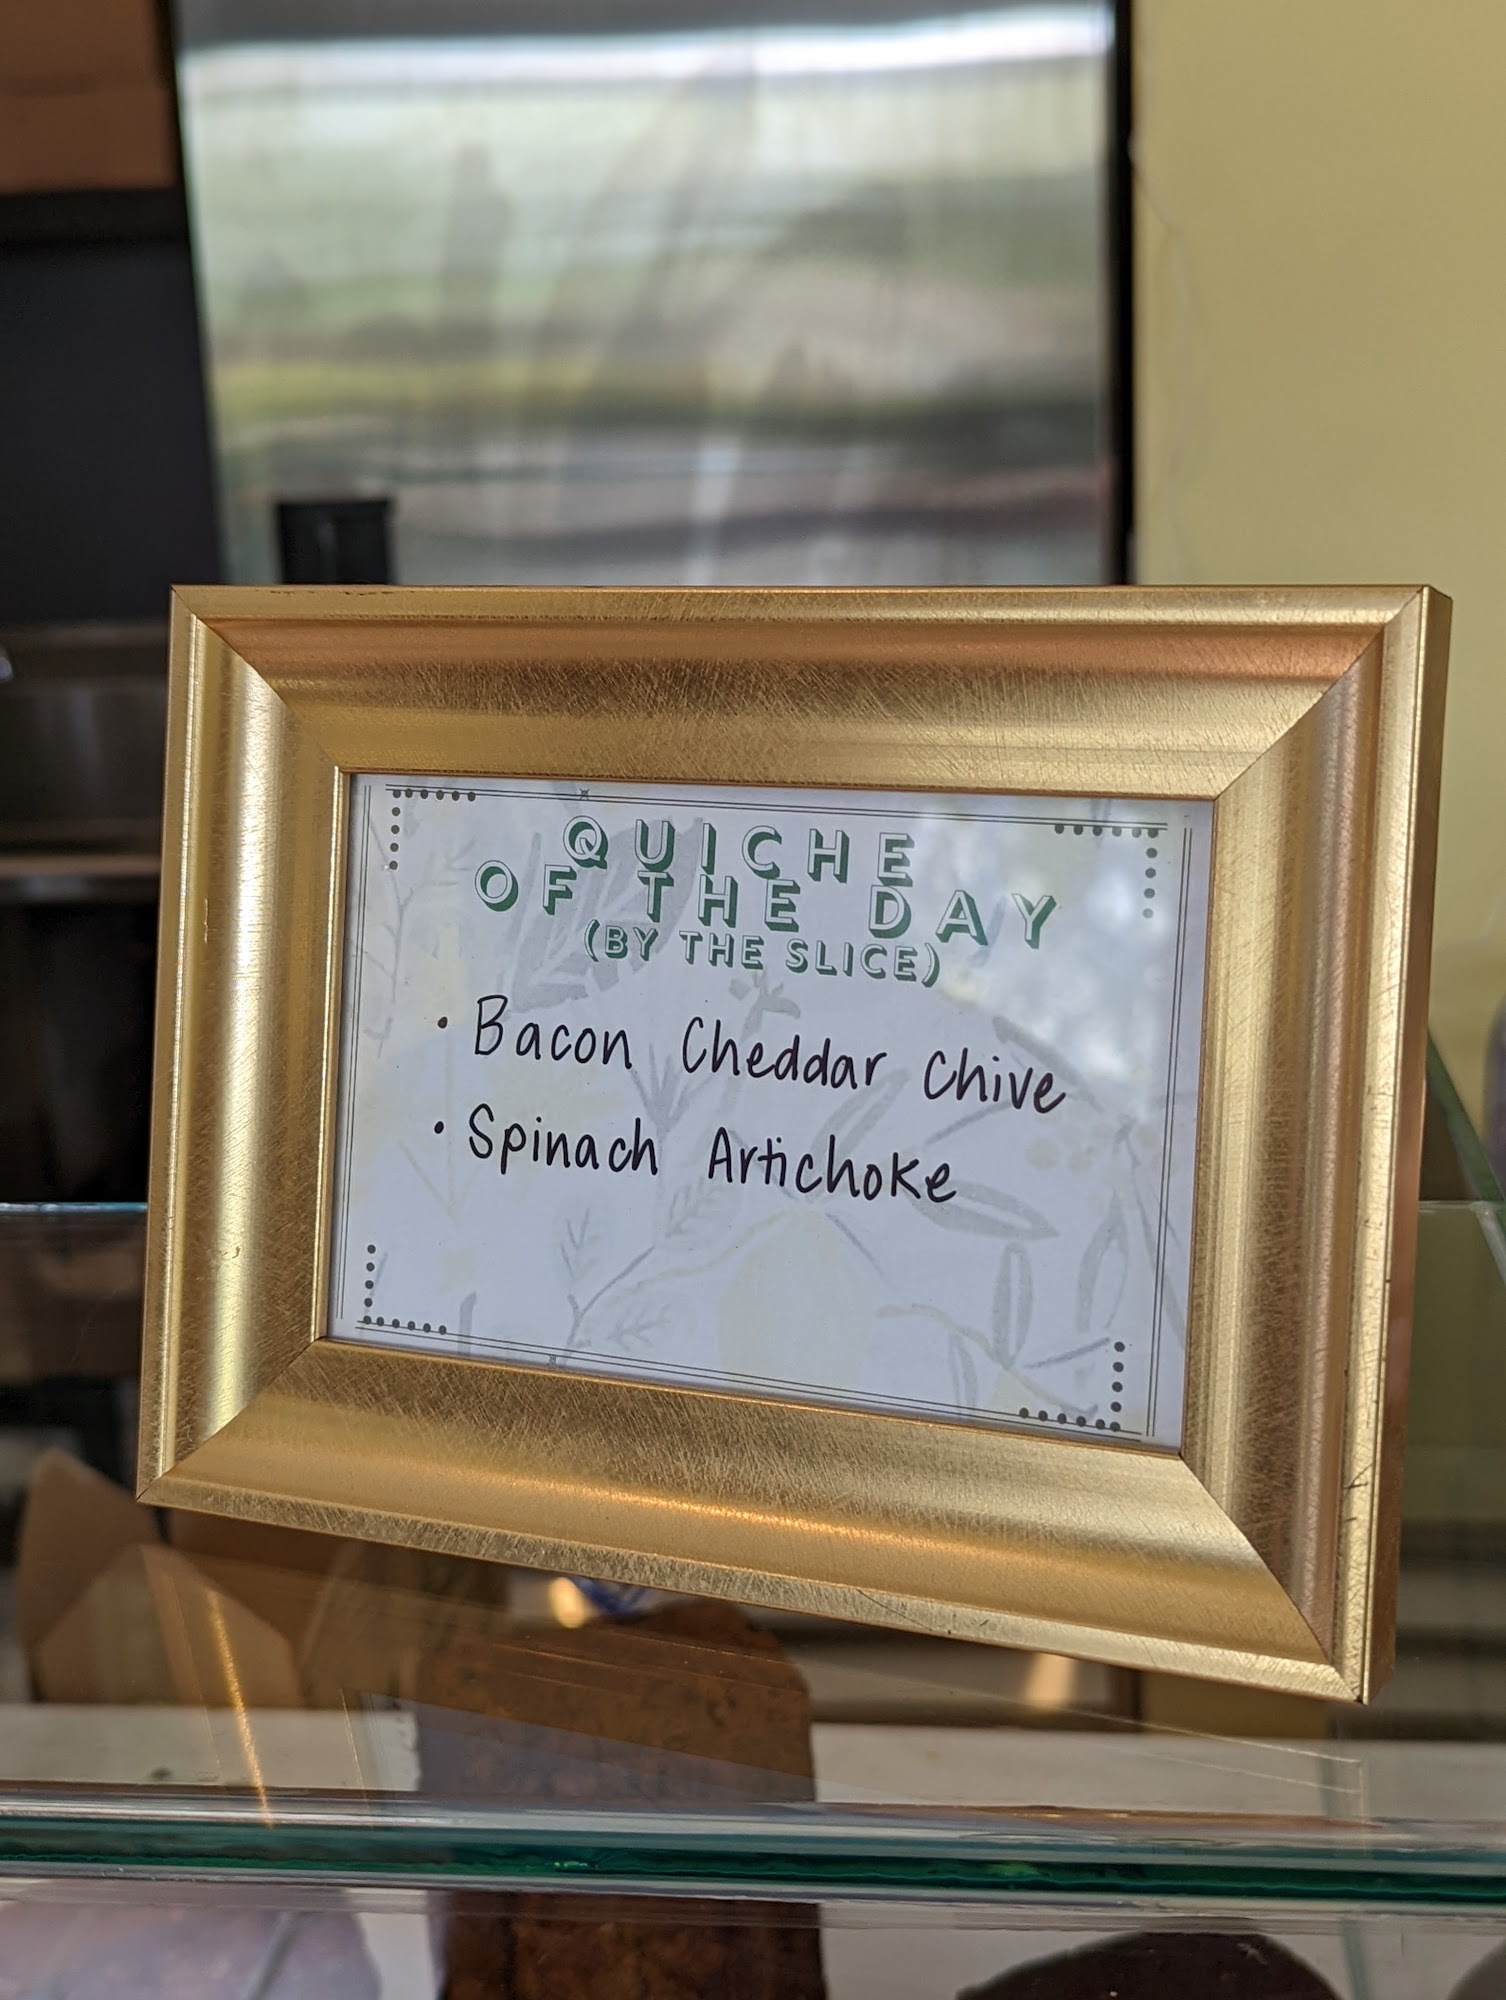 QUICHE
OF THE DAY
(BY THE SLICE)
• Bacon Cheddar Chive
• Spinach Artichoke